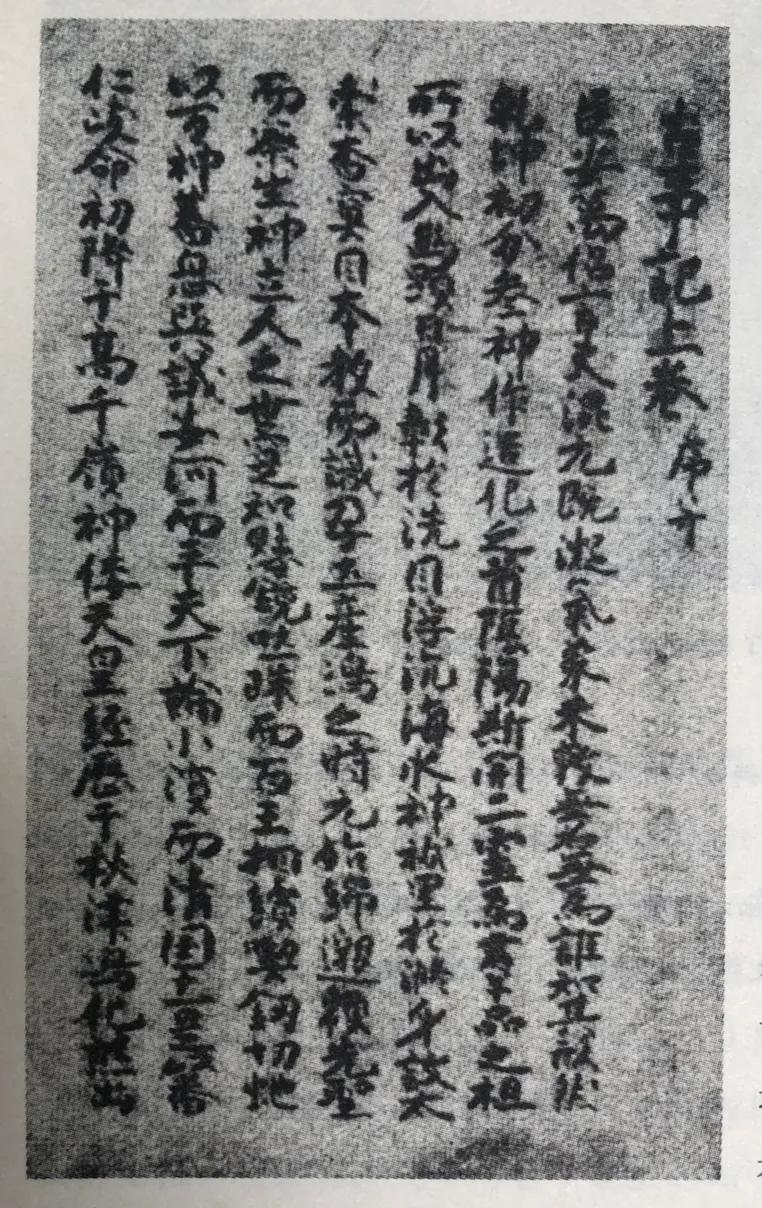 古事記上卷 序并
臣安萬侶言夫混元既凝氣象未效無名無為誰知其形然
乾坤初分參神作造化之首陰陽斯開二靈為群品之祖
所以出入幽顯日月彰於洗目浮沉海水神祇呈於滌身故太
素杳冥因本教而識孕土產嶋之時元始綿邈頼先聖
而察生神立人之世寔知懸鏡吐珠而百王相續喫釼切虵
以万神蕃息與議安河而平天下論小濱而清國土是以番
仁岐命初降于高千嶺神倭天皇經歷于秋津嶋化熊出